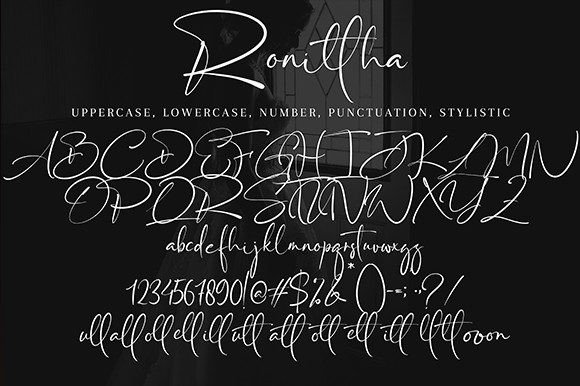 Ronittha
UPPERCASE, LOWERCASE, NUMBER, PUNCTUATION, STYLISTIC
ABCDEFGHIJKLMN
OPQRSTUVWXYZ
abcdefghijklmnopqrstuvwxyz
1234567890!@#$%&*()-=;:,.?/
ull all oll ell ill utt att ott ett itt